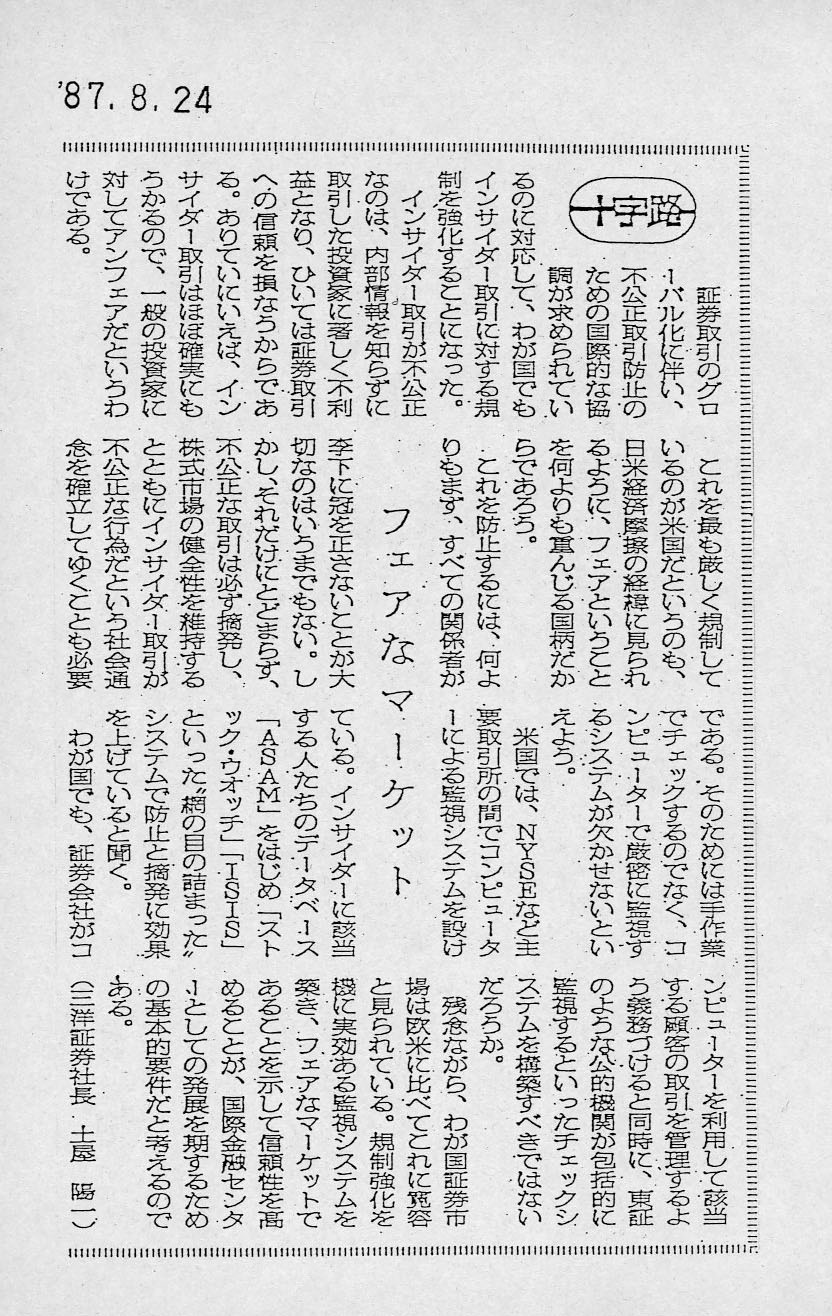 '87.8.24
十字路
フェアなマーケット
証券取引のグロ
ーバル化に伴い、
不公正取引防止の
ための国際的な協
調が求められてい
るのに対応して、わが国でも
インサイダー取引に対する規
制を強化することになった。
インサイダー取引が不公正
なのは、内部情報を知らずに
取引した投資家に著しく不利
益となり、ひいては証券取引
への信頼を損なうからであ
る。ありていにいえば、イン
サイダー取引はほぼ確実にも
うかるので、一般の投資家に
対してアンフェアだというわ
けである。
これを最も厳しく規制して
いるのが米国だというのも、
日米経済摩擦の経緯に見られ
るように、フェアということ
を何よりも重んじる国柄だか
らであろう。
これを防止するには、何よ
りもまず、すべての関係者が
李下に冠を正さないことが大
切なのはいうまでもない。し
かし、それだけにとどまらず、
不公正な取引は必ず摘発し、
株式市場の健全性を維持する
とともにインサイダー取引が
不公正な行為だという社会通
念を確立してゆくことも必要
である。そのためには手作業
でチェックするのでなく、コ
ンピューターで厳密に監視す
るシステムが欠かせないとい
えよう。
米国では、NYSEなど主
要取引所の間でコンピュータ
ーによる監視システムを設け
ている。インサイダーに該当
する人たちのデータベース
「ASAM」をはじめ「スト
ック・ウオッチ」「ISIS」
といった〝網の目の詰まった〟
システムで防止と摘発に効果
を上げていると聞く。
わが国でも、証券会社がコ
ンピューターを利用して該当
する顧客の取引を管理するよ
う義務づけると同時に、東証
のような公的機関が包括的に
監視するといったチェックシ
ステムを構築すべきではない
だろうか。
残念ながら、わが国証券市
場は欧米に比べてこれに寛容
と見られている。規制強化を
機に実効ある監視システムを
築き、フェアなマーケットで
あることを示して信頼性を高
めることが、国際金融センタ
ーとしての発展を期するため
の基本的要件だと考えるので
ある。
（三洋証券社長 土屋 陽一）